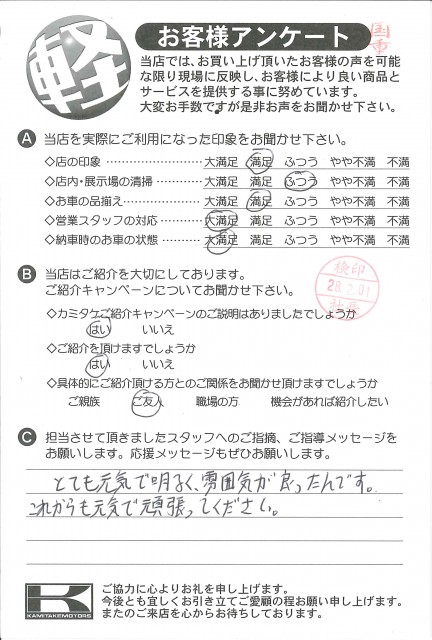 軽
お客様アンケート
国
重
当店では、お買い上げ頂いたお客様の声を可能
な限り現場に反映し、お客様により良い商品と
サービスを提供する事に努めています。
大変お手数ですが是非お声をお聞かせ下さい。
A 当店を実際にご利用になった印象をお聞かせ下さい。
◇店の印象 大満足 満足 ふつう やや不満 不満
◇店内・展示場の清掃 大満足 満足 ふつう やや不満 不満
◇お車の品揃え 大満足 満足 ふつう やや不満 不満
◇営業スタッフの対応 大満足 満足 ふつう やや不満 不満
◇納車時のお車の状態 大満足 満足 ふつう やや不満 不満
B 当店はご紹介を大切にしております。
ご紹介キャンペーンについてお聞かせ下さい。
検印
28.2.01
社長
◇カミタケご紹介キャンペーンのご説明はありましたでしょうか
はい いいえ
◇ご紹介を頂けますでしょうか
はい いいえ
◇具体的にご紹介頂ける方とのご関係をお聞かせ頂けますでしょうか
ご親族 ご友人 職場の方 機会があれば紹介したい
C 担当させて頂きましたスタッフへのご指摘、ご指導メッセージを
お願いします。応援メッセージもぜひお願いします。
とても元気で明るく、雰囲気が良ったんです。
これからも元気で頑張ってください。
K
KAMITAKEMOTORS
ご協力に心よりお礼を申し上げます。
今後とも宜しくお引き立てご愛顧の程お願い申し上げます。
またのご来店を心からお待ちしております。